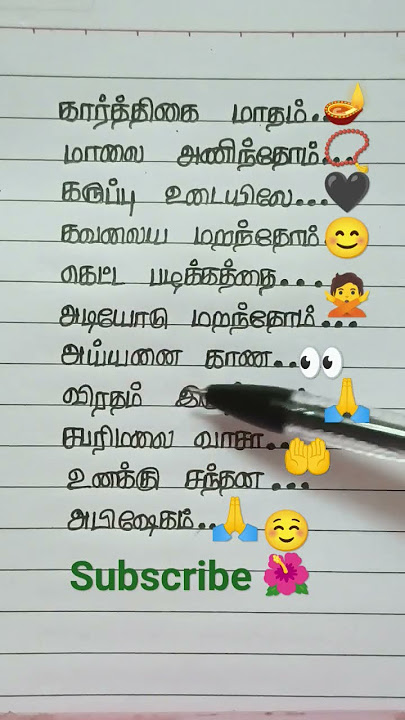 கார்த்திகை மாதம்..
மாலை அணிந்தோம்...
கருப்பு உடையிலே...
கவலைய மறந்தோம்.
கெட்ட படிக்கத்தை...
அடியோடு மறந்தோம்...
அய்யனை காண..
விரதம்
சபரிமலை வாசா..
உனக்கு சந்தன ...
அபிஷேகம்..
Subscribe